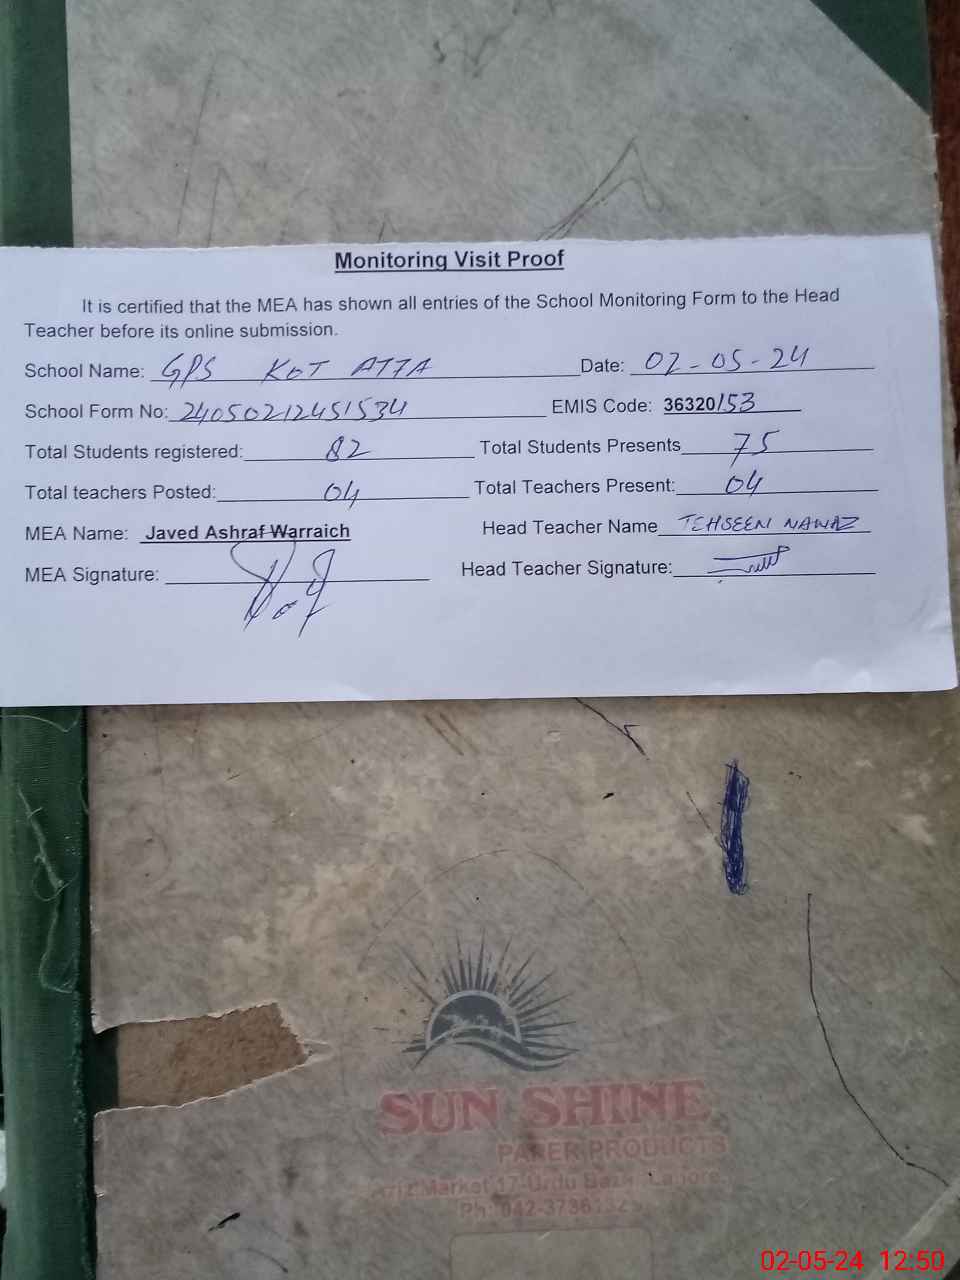 Monitoring Visit Proof
It is certified that the MEA has shown all entries of the School Monitoring Form to the Head
Teacher before its online submission.
School Name: GPS KOT ATTA Date: 02-05-24
School Form No: 24050212451534 EMIS Code: 36320153
Total Students registered: 82 Total Students Presents 75
Total teachers Posted: 04 Total Teachers Present: 04
MEA Name: Javed Ashraf Warraich Head Teacher Name TEHSEEN NAWAZ
MEA Signature: Head Teacher Signature:
SUN SHINE
PAPER PRODUCTS
Market 17-Urdu Lahore.
Ph: 042-
02-05-24 12:50